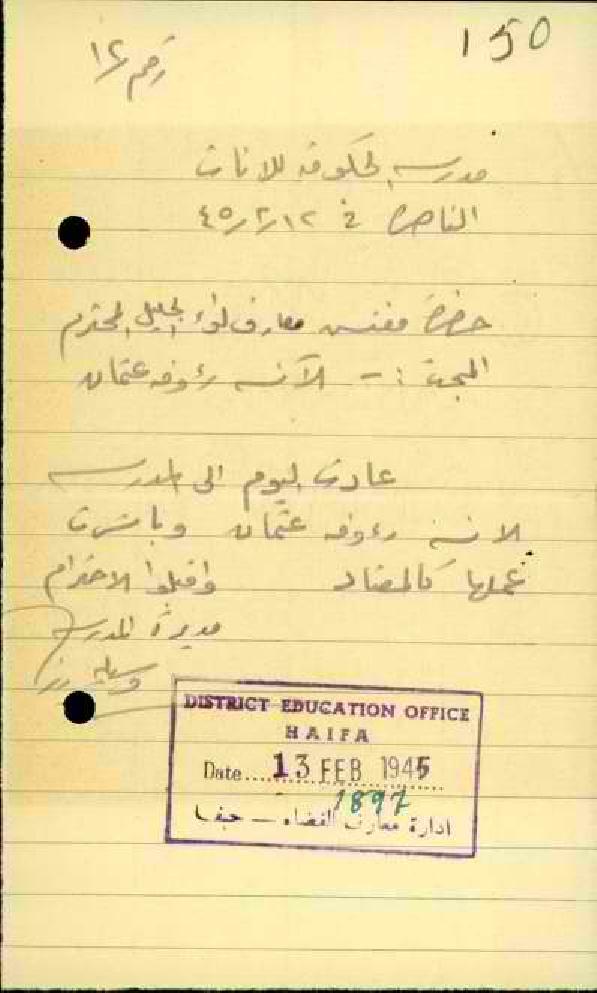 150
رقم ١٤
مدرسة الحكومة للاناث
الناصرة في ٤٥/٢/١٢
حضرة مفتش معارف لواء الجليل المحترم
المبحث :- الآنسه رؤوفه عثمان
عادت اليوم الى المدرسه
الانسه رءوفه عثمان وباشرت
عملها كالمعتاد واقبلوا الاحترام
مديرة المدرسه
DISTRICT EDUCATION OFFICE
HAIFA
Date....13 FEB 1945
1897
ادارة معارف القضاء – حيفا